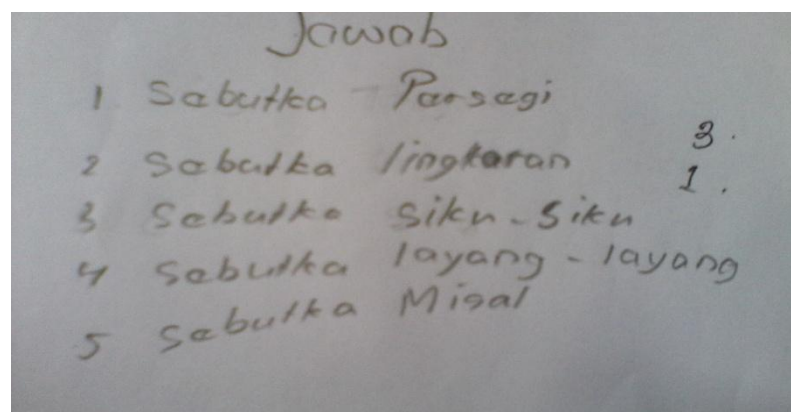 Jawab
1 Sabutka - Parsagi
2 Sabutka lingkaran
3 Sabutka siku-siku
4 Sabutka layang-layang
5 Sabutka Misal
3.
1.